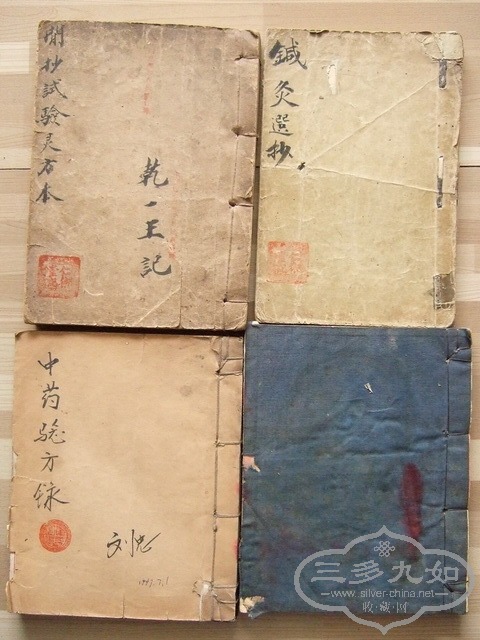 閒抄試驗灵方本
乾一王記
鍼灸選抄
中药验方録
刘忠
1993.7.1
三多九如
www.silver-china.net
收藏网